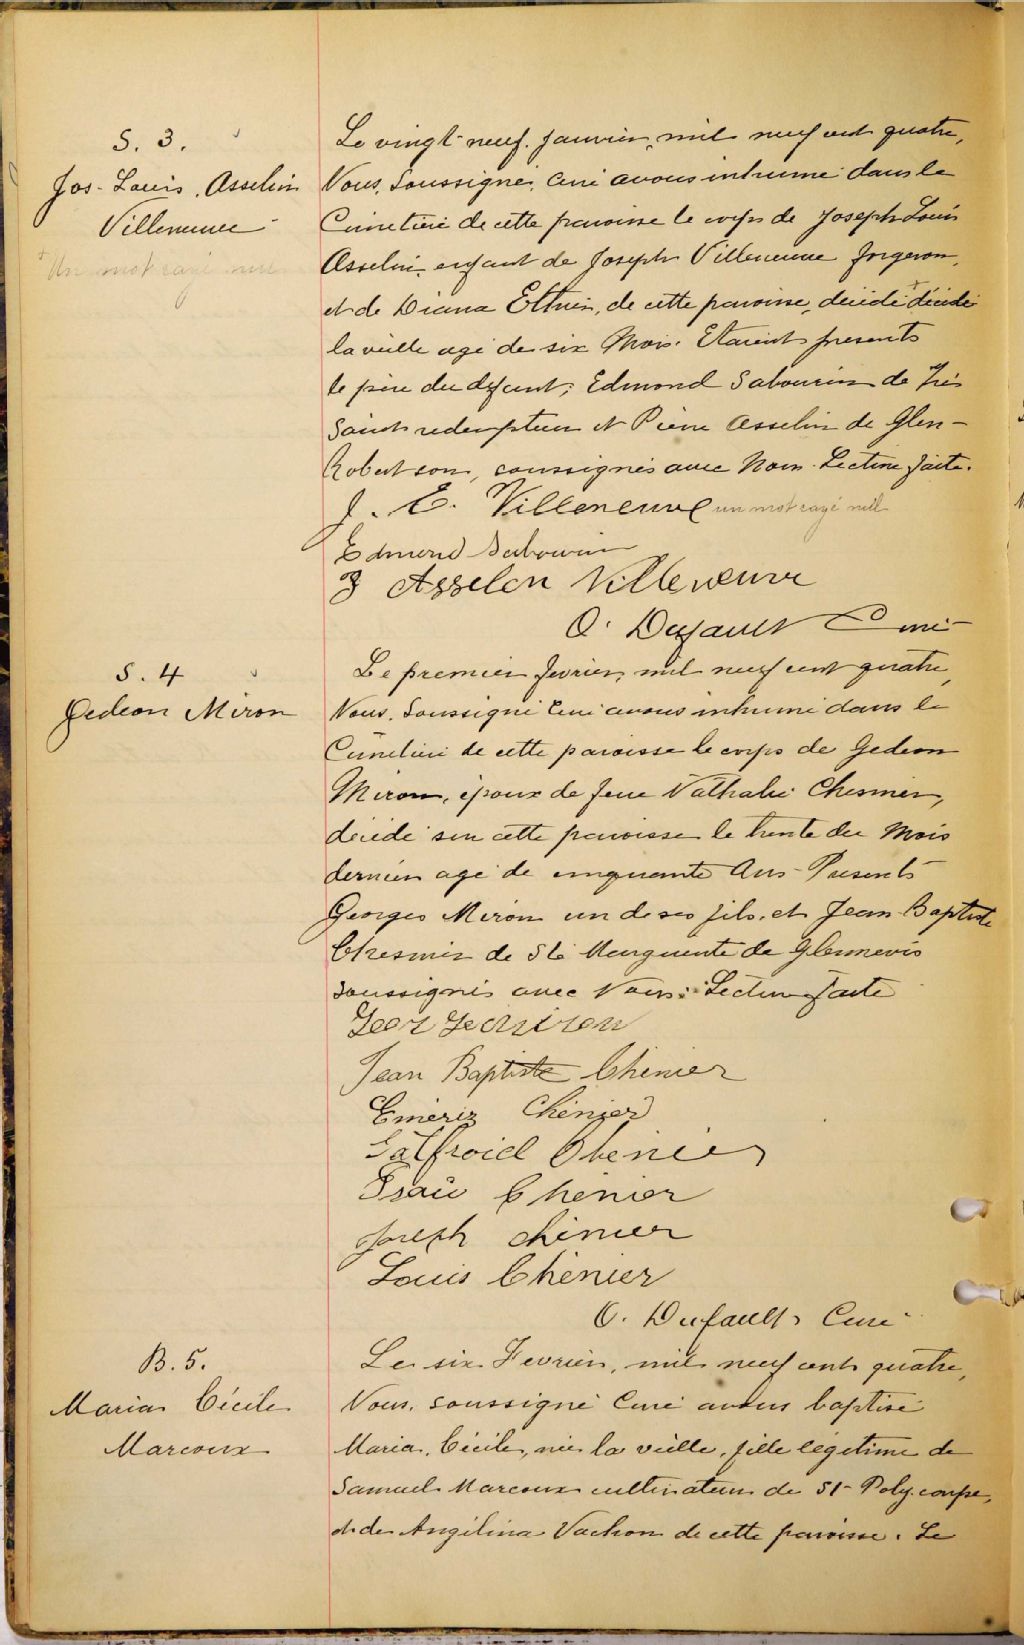 S. 3.
Jos. Louis. Asselin
Villeneuve
Un mot rayé nul
Le vingt-neuf Janvier, mil neuf cent quatre,
Nous, Soussigné, Curé avons inhumé dans le
Cimetière de cette paroisse le corps de Joseph Louis
Asselin, enfant de Joseph Villeneuve forgeron,
et de Diana Ethier, de cette paroisse, décidé décidé
la veille agé de six Mois. Etaient présents
le père du défunt; Edmond Sabourin de Très
Saint redempteur et Pierre Asselin de Glen-
Robertson, soussignés avec Nous. Lecture faite.
J. E. Villeneuve un mot rayé nul
Edmond Sabourin
P Asselin Villeneuve
O. Dufault Curé
S. 4
Gedeon Miron
Le premier fevrier, mil neuf cent quatre,
Nous, Soussigné Curé avons inhumé dans le
Cimetière de cette paroisse le corps de Gedeon
Miron, époux de feue Nathalie Chesnier,
décidé sur cette paroisse le trente du Mois
dernier agé de cinquante Ans. Présents
Georges Miron un de ses fils, et Jean-Baptiste
Chesnier de Ste Marguerite de Glennevis
soussignés avec Nous. Lecture faite
Jean Baptiste Chénier
Eméric Chénier
Galfroid Chenier
Esaü Chénier
Joseph chénier
Louis Chénier
O. Dufault, Curé
B. 5.
Maria Cécile
Marcoux
Le six Fevrier, mil neuf cent quatre,
Nous, soussigné Curé avons baptisé
Maria, Cécile, née la veille, fille légitime de
Samuel Marcoux cultivateur de St-Polycarpe,
et de Angélina Vachon de cette paroisse. Le